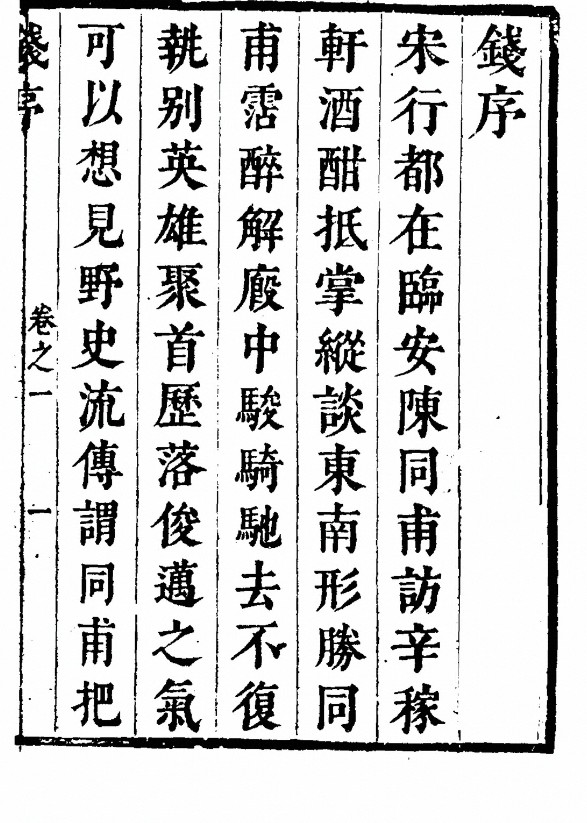 錢序
宋行都在臨安陳同甫訪辛稼
軒酒酣抵掌縱談東南形勝同
甫霑醉解廄中駿騎馳去不復
執别英雄聚首歷落俊邁之氣
可以想見野史流傳謂同甫把
錢序
卷之一
一